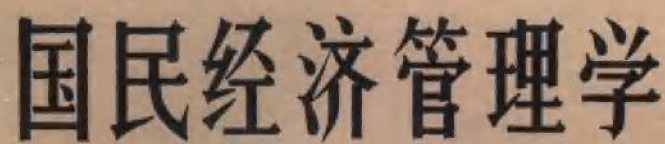 国民经济管理学